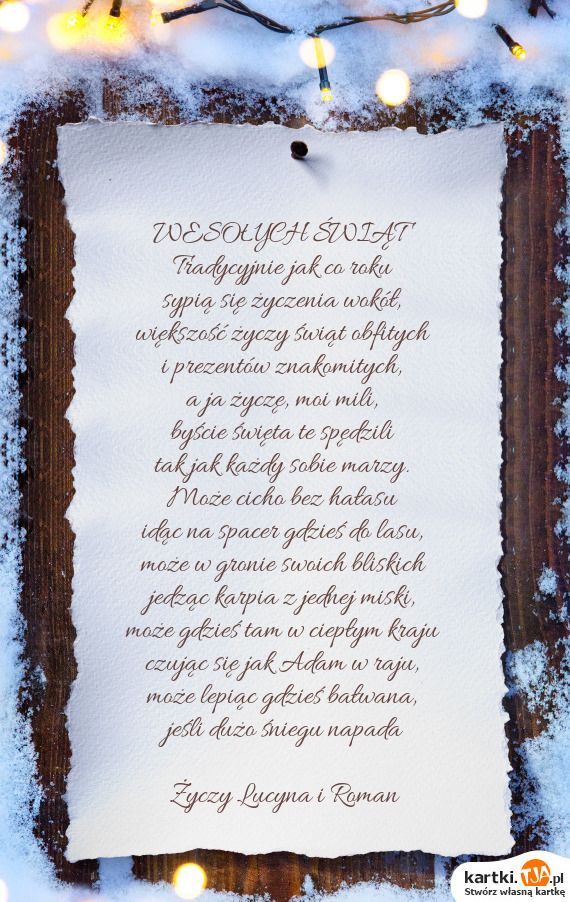 WESOŁYCH ŚWIĄT
Tradycyjnie jak co roku
sypią się życzenia wokół,
większość życzy świąt obfitych
i prezentów znakomitych,
a ja życzę, moi mili,
byście święta te spędzili
tak jak każdy sobie marzy.
Może cicho bez hałasu
idąc na spacer gdzieś do lasu,
może w gronie swoich bliskich
jedząc karpia z jednej miski,
może gdzieś tam w ciepłym kraju
czując się jak Adam w raju,
może lepiąc gdzieś bałwana,
jeśli dużo śniegu napada
Życzy Lucyna i Roman
kartki.TJA.pl
Stwórz własną kartkę